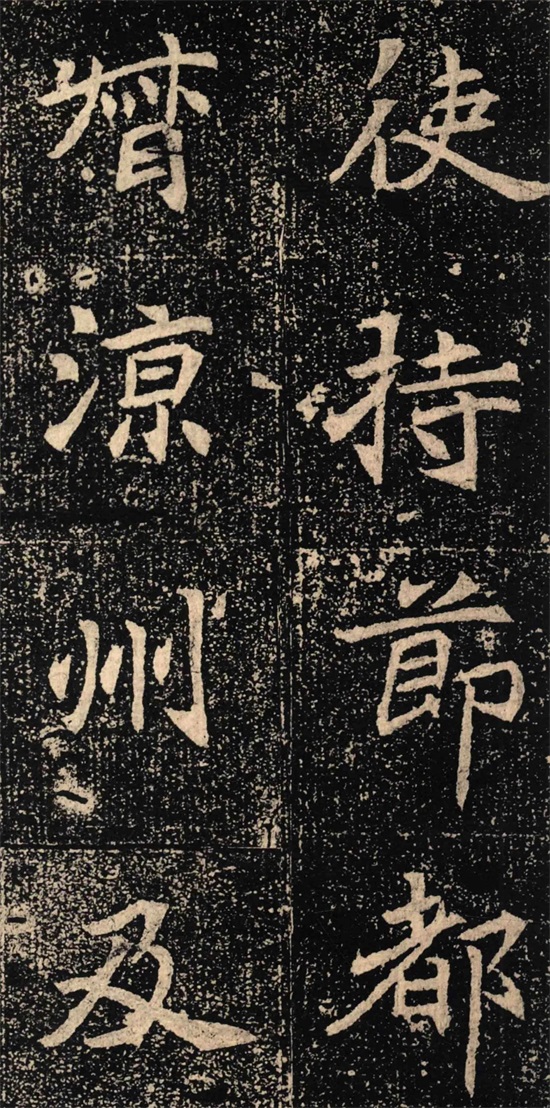 使持節都
督涼州及